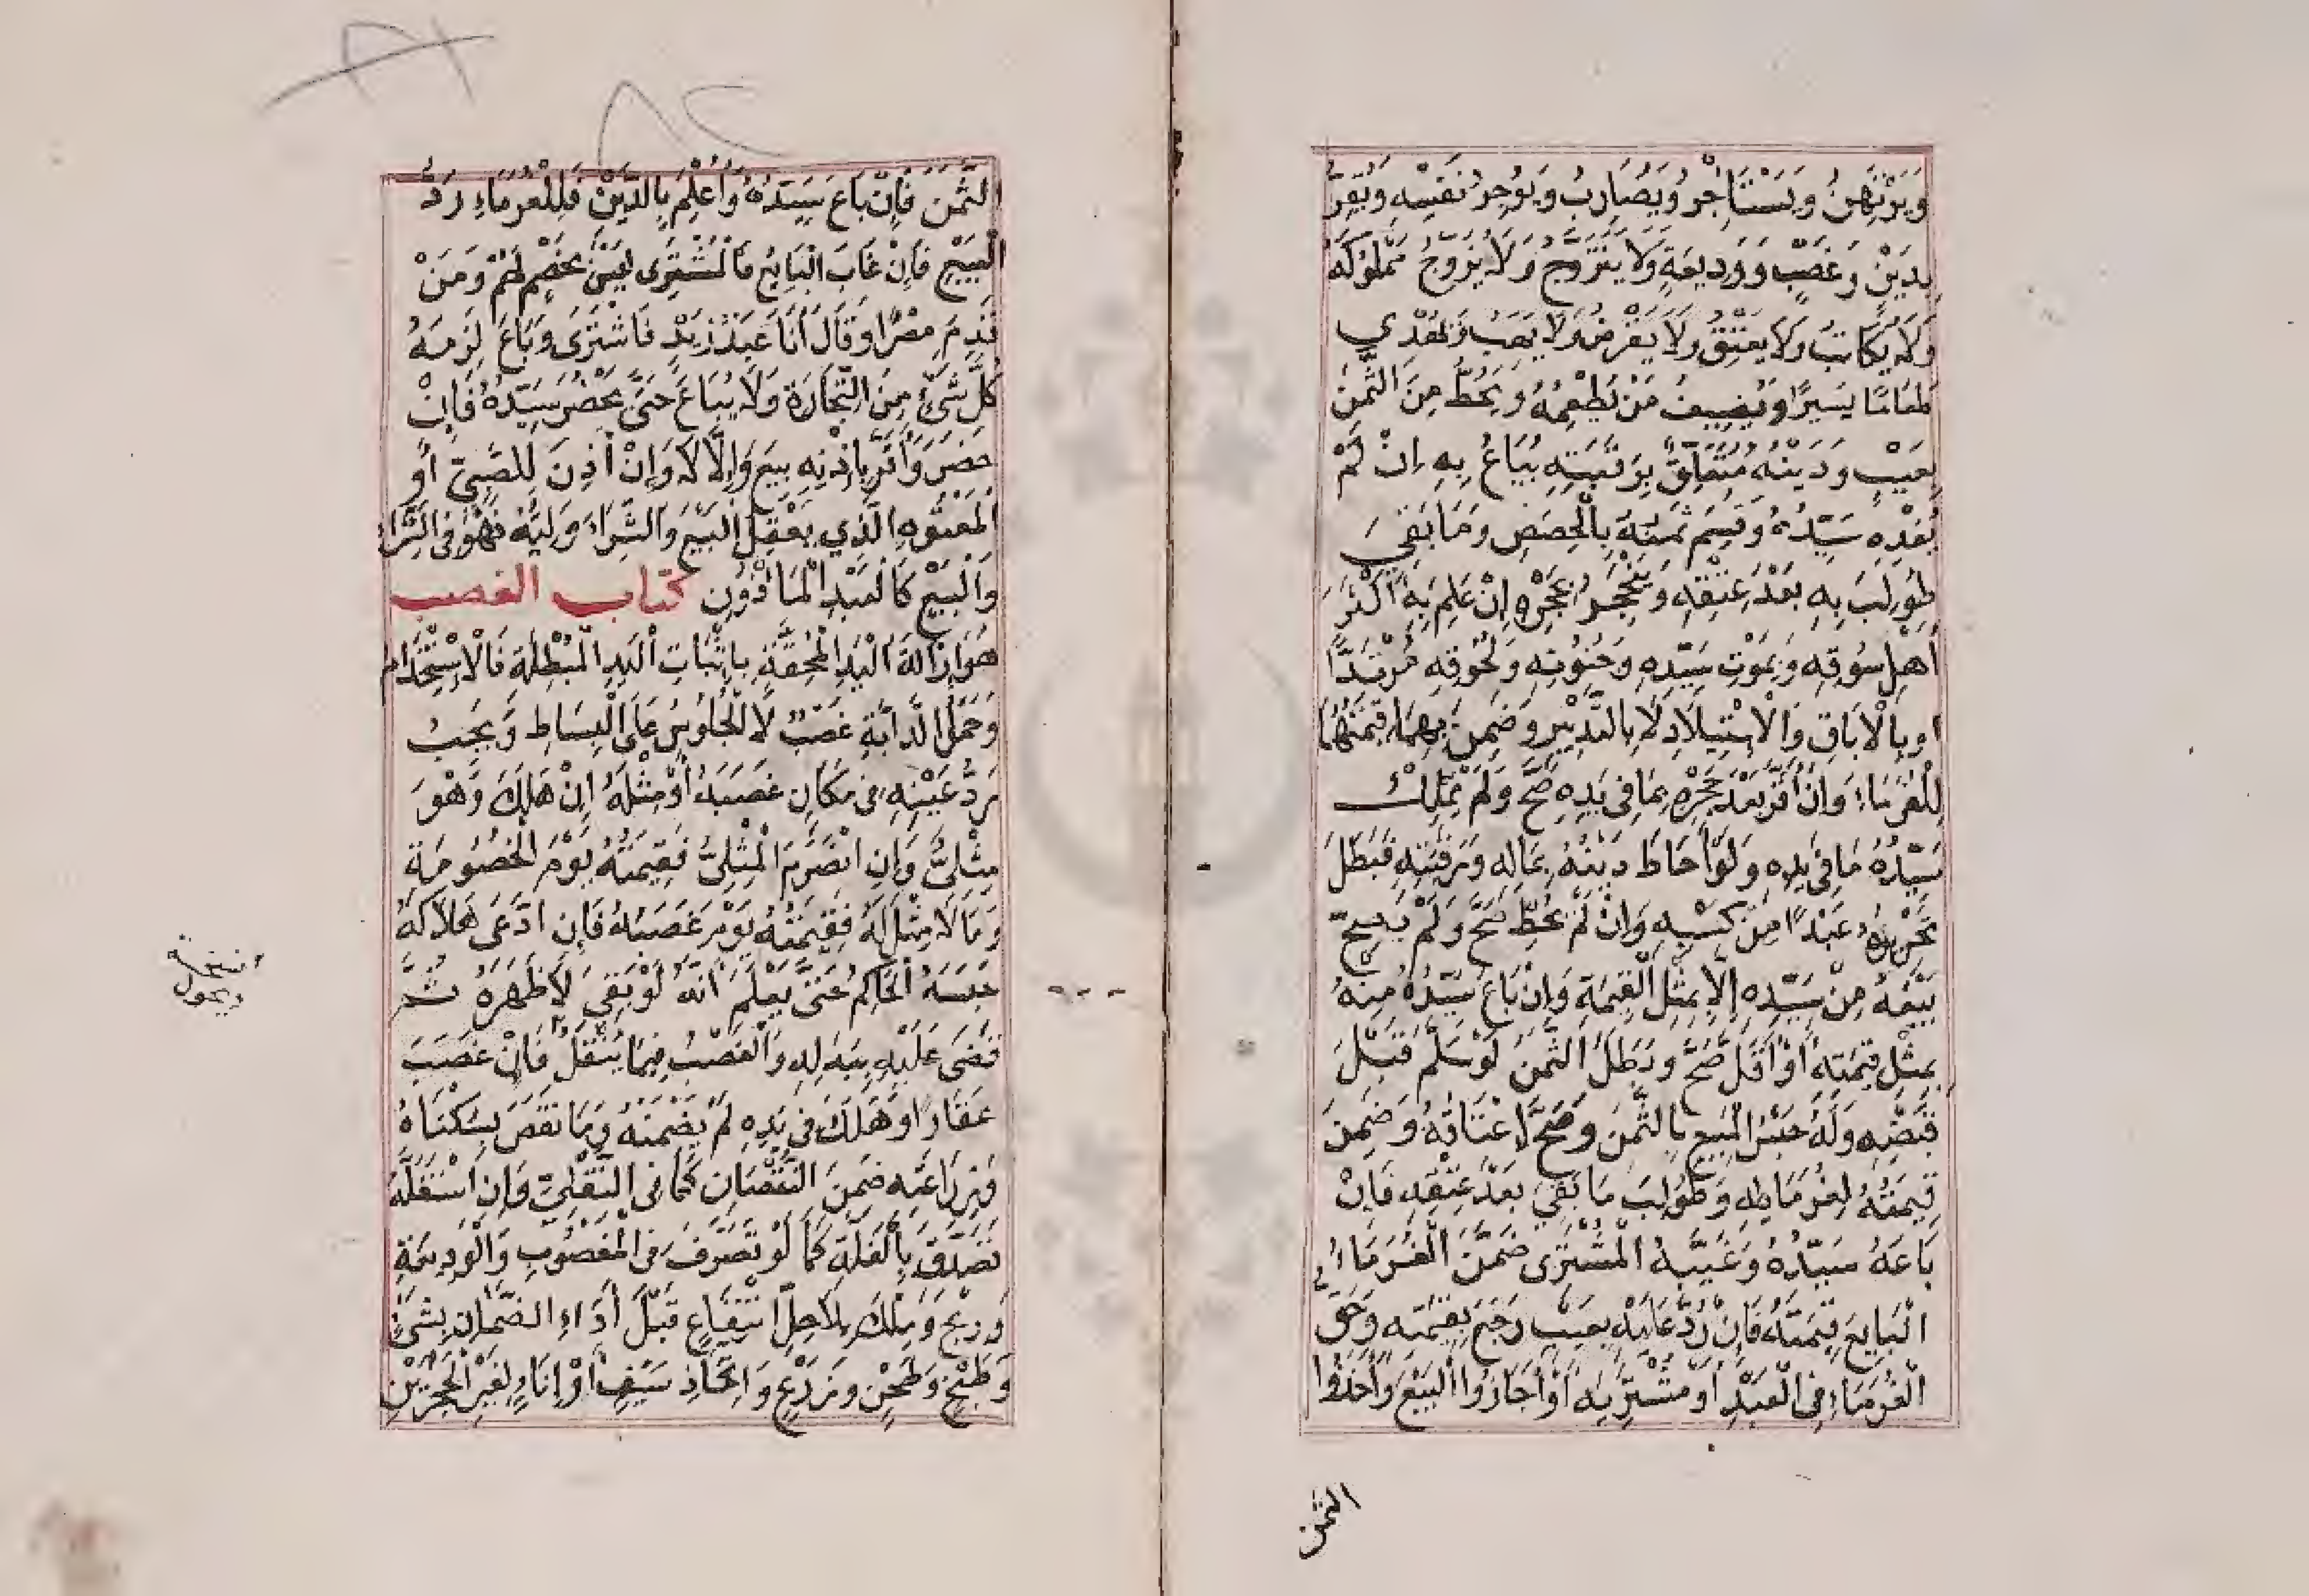 وَيَرْتَهِنُ وَيَسْتَأْجِرُ وَيُضَارِبُ وَيُؤْجِرُ نَفْسَهُ وَيُقِرُّ
بِدَيْنٍ وَغَصْبٍ وَوَدِيعَةٍ وَلَا يَتَزَوَّجُ وَلَا يُزَوِّجُ مَمْلُوكَهُ
وَلَا يُكَاتِبُ وَلَا يَعْتِقُ وَلَا يَقْرِضُ وَلَا يَهَبُ وَيُهْدِي
طَعَامًا يَسِيرًا وَيُضِيفُ مَنْ يُطْعِمُهُ وَيَحُطُّ مِنَ الثَّمَنِ
بِعَيْبٍ وَدَيْنُهُ مُتَعَلِّقٌ بِرَقَبَتِهِ يُبَاعُ بِهِ اِنْ لَمْ
يَفْدِهِ سَيِّدُهُ وَقُسِمَ ثَمَنُهُ بِالْحِصَصِ وَمَا بَقِيَ
طُولِبَ بِهِ بَعْدَ عِتْقِهِ وَيَنْحَجِرُ بِحَجْرِهِ إِنْ عَلِمَ بِهِ أَكْثَرُ
أَهْلِ سُوقِهِ وَبِمَوْتِ سَيِّدِهِ وَجُنُونِهِ وَلُحُوقِهِ مُرْتَدًّا
اوبِالْاِبَاقِ وَالْاِسْتِيلَادِ لَا بِالتَّدْبِيرِ وَضَمِنَ بِهِمَا قِيمَتَهُمَا
لِلْغُرَمَاءِ وَإِنْ أَقَرَّ بَعْدَ حَجْرِهِ بِمَا فِي يَدِهِ صَحَّ وَلَمْ يَمْلِكْ
سَيِّدُهُ مَا فِي يَدِهِ وَلَوْ أَحَاطَ دَيْنُهُ بِمَالِهِ وَرَقَبَتِهِ فَبَطَلَ
تَحْرِيرُهُ عَبْدًا مِنْ كَسْبِهِ وَإِنْ لَمْ يُحِطْ صَحَّ وَلَمْ يَصِحَّ
بَيْعُهُ مِنْ سَيِّدِهِ إِلَّا بِمِثْلِ الْقِيمَةِ وَإِنْ بَاعَ سَيِّدُهُ مِنْهُ
بِمِثْلِ قِيمَتِهِ أَوْ أَقَلَّ صَحَّ وَبَطَلَ الثَّمَنُ لَوْ سَلَّمَ قَبْلَ
قَبْضِهِ وَلَهُ حَبْسُ الْمَبِيعِ بِالثَّمَنِ وَصَحَّ اِعْتَاقُهُ وَضَمِنَ
قِيمَتَهُ لِغُرَمَائِهِ وَطُولِبَ مَا بَقِيَ بَعْدَ عِتْقِهِ فَإِنْ
بَاعَهُ سَيِّدُهُ وَغَيَّبَهُ الْمُشْتَرِى ضَمَّنَ الْغُرَمَاءُ
الْبَايِعَ قِيمَتَهُ فَإِنْ رُدَّ عَلَيْهِ بِعَيْبٍ رَجَعَ بِقِيمَتِهِ وَحَقُّ
الْغُرَمَاءِ فِي الْعَبْدِ أَوْ مُشْتَرِيهِ أَوْ أَجَازُوا الْبَيْعَ وَأَخَذُوا
الثمن
الثَّمَنَ فَإِنْ بَاعَ سَيِّدُهُ وَأَعْلَمَ بِالدَّيْنِ فَلِلْغُرَمَاءِ رَدُّ
الْبَيْعِ فَإِنْ غَابَ الْبَايِعُ فَالْمُشْتَرِى لَيْسَ بِخَصْمٍ لَهُمْ وَمَنْ
قَدِمَ مِصْرًا وَقَالَ أَنَا عَبْدُ زَيْدٍ فَاشْتَرَى وَبَاعَ لَزِمَهُ
كُلُّ شَيْءٍ مِنَ التِّجَارَةِ وَلَا يُبَاعُ حَتَّى يَحْضُرَ سَيِّدُهُ فَإِنْ
حَضَرَ وَأَقَرَّ بِإِذْنِهِ بِيعَ وَإِلَّا لَا وَإِنْ أَذِنَ لِلصَّبِيِّ أَوِ
الْمَعْتُوهِ الَّذِي يَعْقِلُ الْبَيْعَ وَالشِّرَاءَ وَلِيُّهُ فَهُوَ فِي الشِّرَاءِ
وَالْبَيْعِ كَالْعَبْدِ الْمَأْذُونِ كتاب الغصب
هُوَ اِزَالَةُ الْيَدِ الْمُحِقَّةِ بِاِثْبَاتِ الْيَدِ الْمُبْطِلَةِ فَالْاِسْتِخْدَامُ
وَحَمْلُ الدَّابَّةِ غَصْبٌ لَا الْجُلُوسُ عَلَى الْبِسَاطِ وَيَجِبُ
رَدُّ عَيْنِهِ فِي مَكَانِ غَصْبِهِ أَوْ مِثْلِهِ اِنْ هَلَكَ وَهُوَ
مِثْلِيٌّ وَإِنِ انْصَرَمَ الْمِثْلِيُّ فَقِيمَتُهُ يَوْمَ الْخُصُومَةِ
وَمَا لَا مِثْلَ لَهُ فَقِيمَتُهُ يَوْمَ غَصْبِهِ فَإِنِ ادَّعَى هَلَاكَهُ
حَبَسَهُ الْحَاكِمُ حَتَّى يَعْلَمَ أَنَّهُ لَوْ بَقِيَ لَأَظْهَرَهُ ثُمَّ
قَضَى عَلَيْهِ بِبَدَلِهِ وَالْغَصْبُ فِيمَا يُنْقَلُ فَإِنْ غَصَبَ
عَقَارًا وَهَلَكَ فِي يَدِهِ لَمْ يَضْمَنْهُ وَمَا نَقَصَ بِسُكْنَاهُ
وَزِرَاعَتِهِ ضَمِنَ النُّقْصَانَ كَمَا فِي النَّقْلِيِّ وَإِنِ اسْتَغَلَّهُ
تَصَدَّقَ بِالْغَلَّةِ كَمَا لَوْ تَصَرَّفَ فِي الْمَغْصُوبِ وَالْوَدِيعَةِ
وَرَبِحَ وَمَلَكَ بِلَا حِلِّ انْتِفَاعٍ قَبْلَ أَدَاءِ الضَّمَانِ بِشَيٍّ
وَطَبْخٍ وَطَحْنٍ وَزَرْعٍ وَاتِّخَاذِ سَيْفٍ أَوْ إِنَاءٍ لِغَيْرِ الْحَجَرَيْنِ
نسخة
ويحول